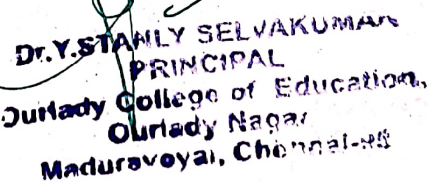 Dr.Y.STANLY SELVAKUMAR
PRINCIPAL
Ourlady College of Education,
Ourlady Nagar
Maduravoyal, Chennai-